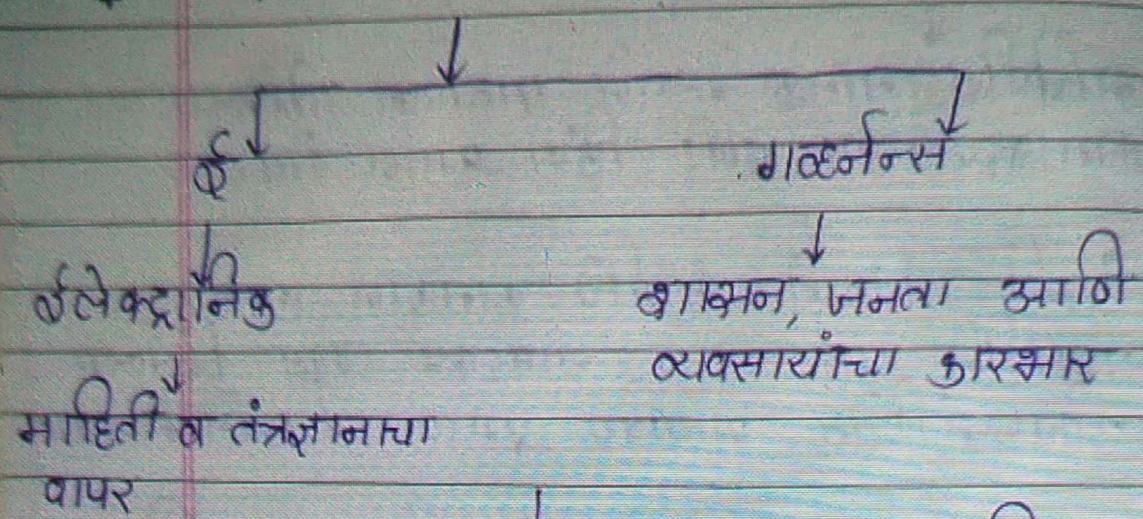 ई
गव्हर्नन्स
ईलेक्ट्रानिक
शासन, जनता आणि
व्यवसायांचा कारभार
माहिती व तंत्रज्ञानाचा
वापर